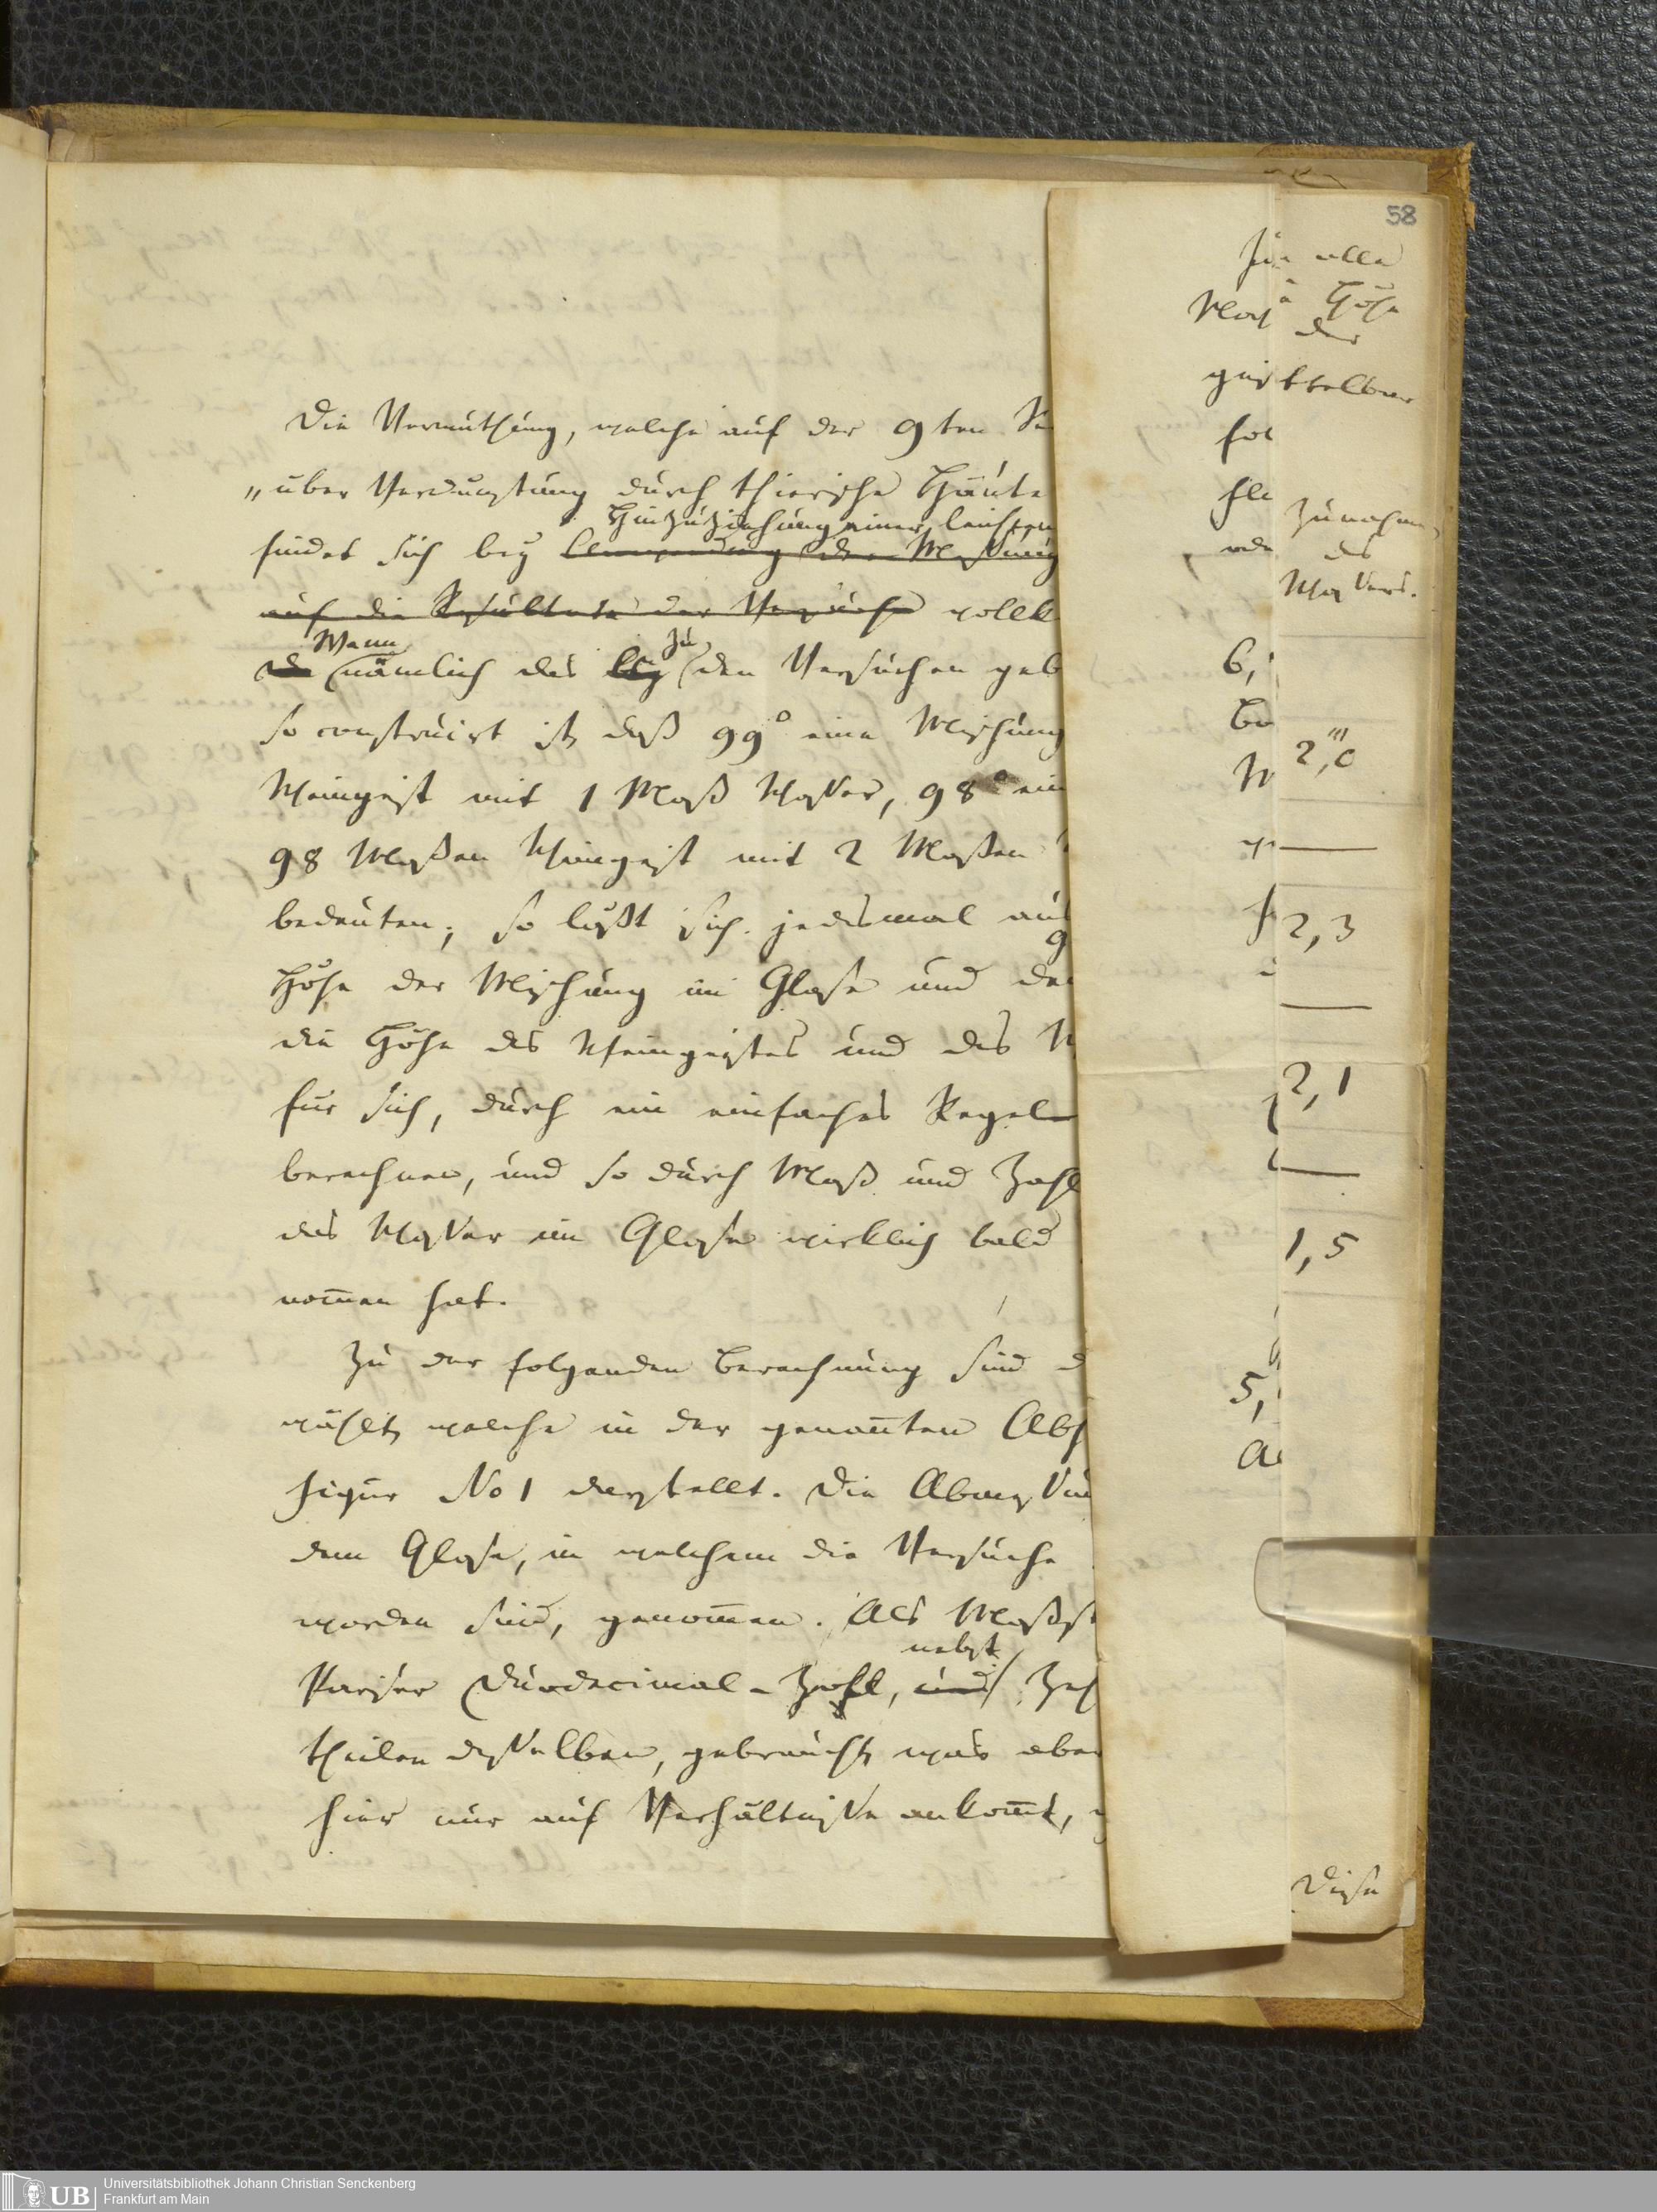 58
Die Vermuthung, welche auf der 9ten Se
„über Verdunstung durch thierische Häute
Hinzuziehung einer leichten
findet sich bey Anwendung der Messung
auf die Resultate der Versuche vollk
Wenn zu
nämlich das bey den Versuchen geb
so construirt ist, daß 99° eine Mischung
Weingeist mit 1 Maß Wasser, 98° ein
98 Maßen Weingeist mit 2 Maßen
bedeuten; so läßt sich jedesmal aus
Höhe der Mischung im Glase und de
die Höhe des Weingeistes und des W
für sich, durch ein einfaches Regel
berechnen, und so durch Maß und Zahl
das Wasser im Glase wirklich bald
nom̄en hat.
Zu der folgenden Berechnung sind d
wählt, welche in der genan̄ten Abh
Figur No 1 darstellt. Die Abmessun
dem Glase, in welchem die Versuche
worden sind, genom̄en. Als Maßst
nebst
Pariser Duodecimal-Zoll, und Zeh
theilen desselben, gebraucht, was aber
hier nur auf Verhältnisse ankom̄t,
6,
5,
alle
Höhe
der
selben
Zunahme
des
Wassers.
2,‴0
2,3
2,1
1,5
Diese